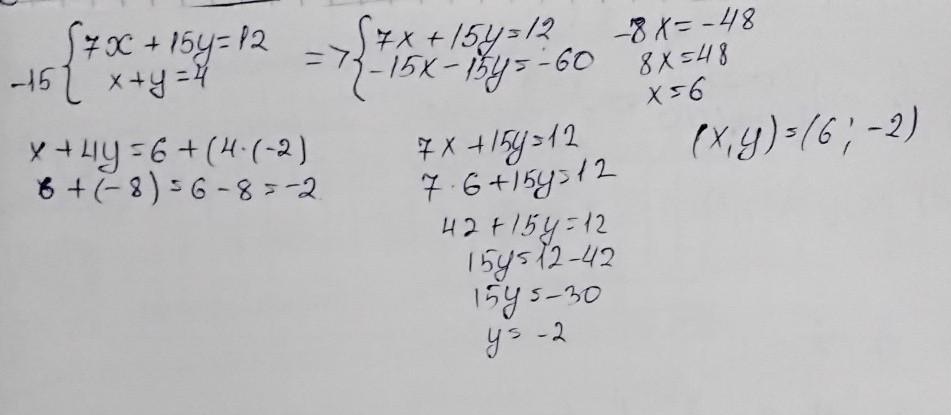 7x + 15y = 12
-15 x + y = 4
=> 7x + 15y = 12
-15x - 15y = -60
-8x = -48
8x = 48
x = 6
x + 4y = 6 + (4·(-2)
6 + (-8) = 6 - 8 = -2
7x + 15y = 12
7·6 + 15y = 12
42 + 15y = 12
15y = 12 - 42
15y = -30
y = -2
(x, y) = (6; -2)